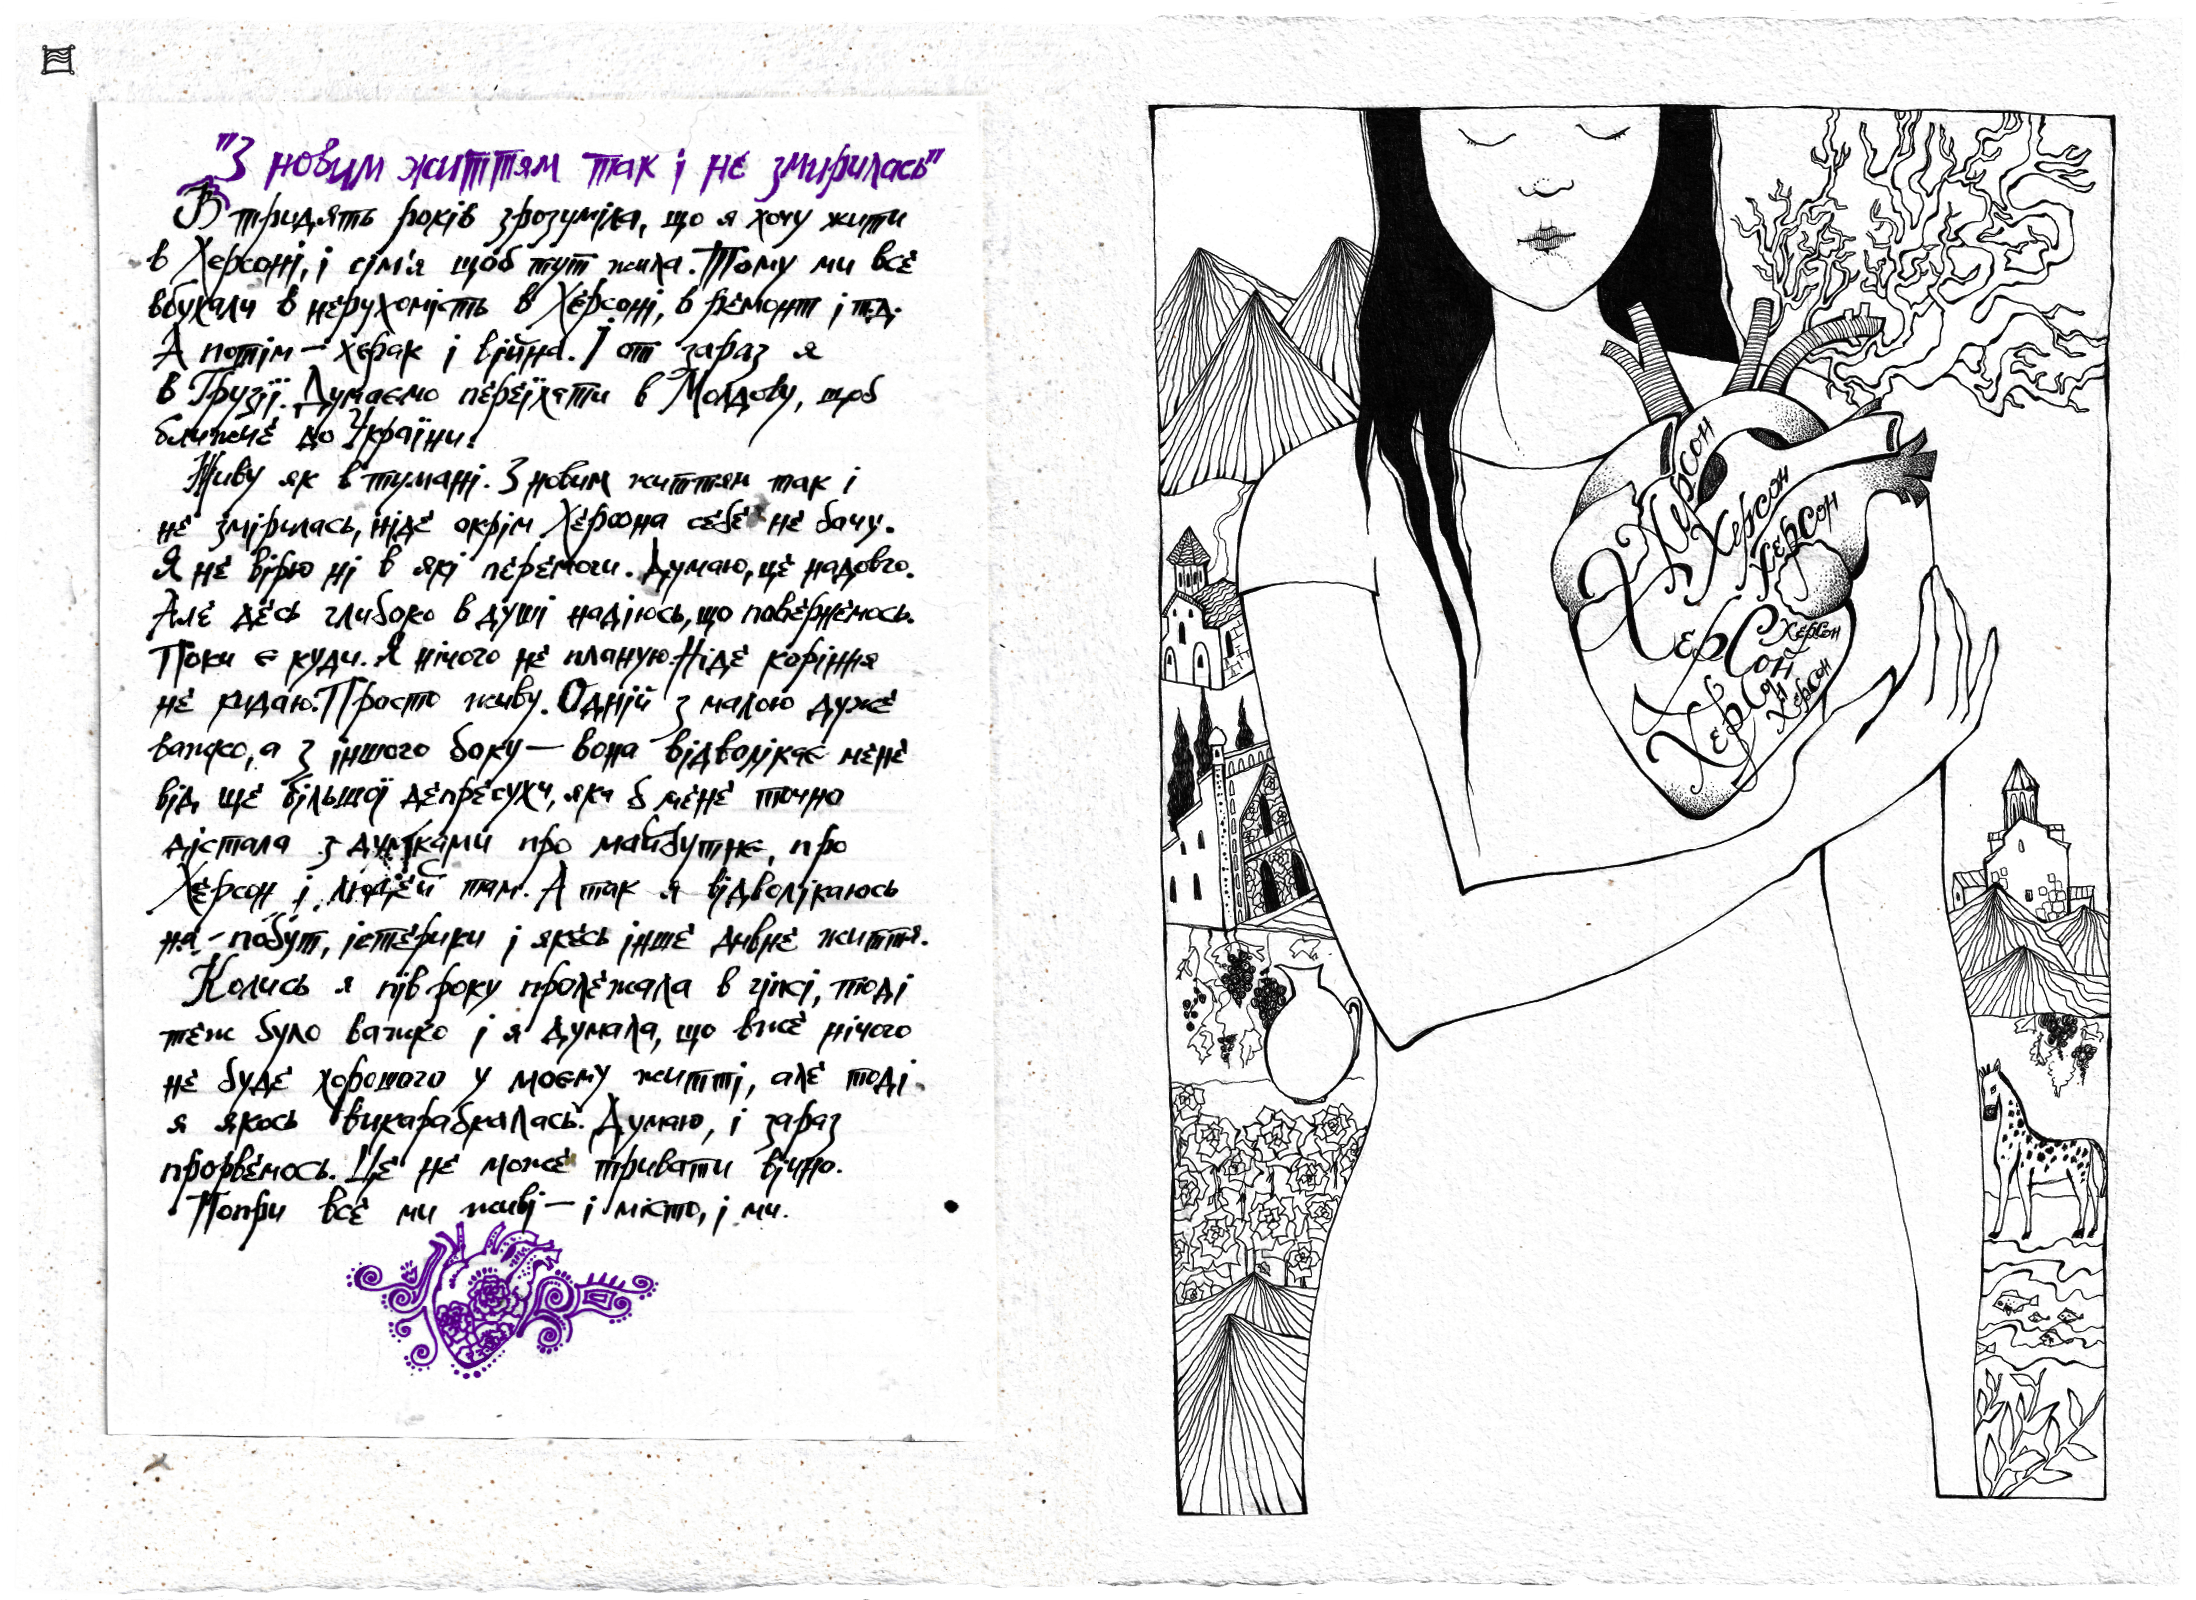 "З новим життям так і не змирилась"
В тридять років зрозуміла, що я хочу жити
в Херсоні, і сім'я щоб тут жила. Тому ми все
вбухали в нерухомість в Херсоні, в ремонт і т.д.
А потім – херак і війна. І от зараз я
в Грузії. Думаємо переїхати в Молдову, щоб
ближче до України.
Живу як в тумані. З новим життям так і
не змірилась, ніде окрім Херсона себе не бачу.
Я не вірю ні в які перемоги. Думаю, це надовго.
Але десь глибоко в душі надіюсь, що повернемось.
Поки є куди. Я нічого не планую. Ніде коріння
не кидаю. Просто живу. Одній з малою дуже
важко, а з іншого боку – вона відволікає мене
від ще більшої депресухи, яка б мене точно
дістала з думками про майбутнє, про
Херсон і людей там. А так я відволікаюсь
на – побут, істерики і якесь інше дивне життя.
Колись я пів року пролежала в гіпсі, тоді
теж було важко і я думала, що вже нічого
не буде хорошого у моєму житті, але тоді
я якось викарабкалась. Думаю, і зараз
прорвемось. Це не може тривати вічно.
Попри все ми живі – і місто, і ми.
Херсон
Херсон
Херсон
Херсон
Херсон
Херсон
Херсон